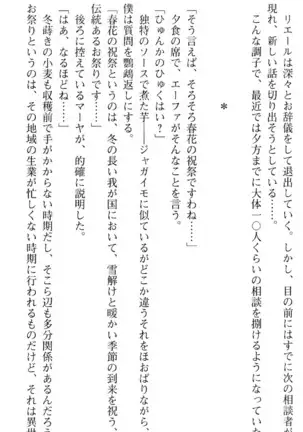 リエールは深々とお辞儀をして退出していく。しかし、目の前にはすでに次の相談者が
現れ、新しい話を切り出そうとしている……。
こんな調子で、最近では夕方までに大体一〇人くらいの相談を捌けるようになっていた
＊
「そう言えば、そろそろ春花の祝祭ですわね」
夕食の席で、エーファがそんなことを言う。
「ひゅんかのひゅくはい？」
独特のソースで煮た芋――ジャガイモに似ているがどこか違うそれをほおばりながら、
僕は質問を鸚鵡返しにする。
「春花の祝祭というのは、冬の長い我が国において、雪解けと暖かい季節の到来を祝う、
伝統あるお祭りです」
後ろに控えているマーヤが、的確に説明した。
「はあ、なるほどね……」
冬蒔きの小麦も収穫前で手がかからない時期だし、そこら辺も多分関係があるんだろう
お祭りというのは、その地域の生業が忙しくない時期に行われるものだけど、それは異世